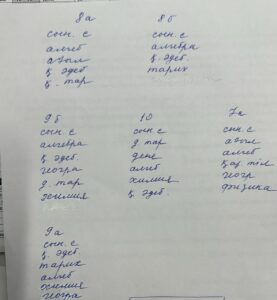 8а
сын. с
алгеб
ағыл
қ. әдеб
қ. тар
8б
сын. с
алгебра
қ. әдеб
тарих
9б
сын с
алгебра
қ. әдеб
геогра
д. тар
химия
10
сын с
д. тар
дене
алгеб
химия
қ. әдеб
7а
сын. с
ағыл
алгеб
қаз. тіл
геогр
физика
9а
сын. с
қ. әдеб
тарих
алгеб
химия
геогра